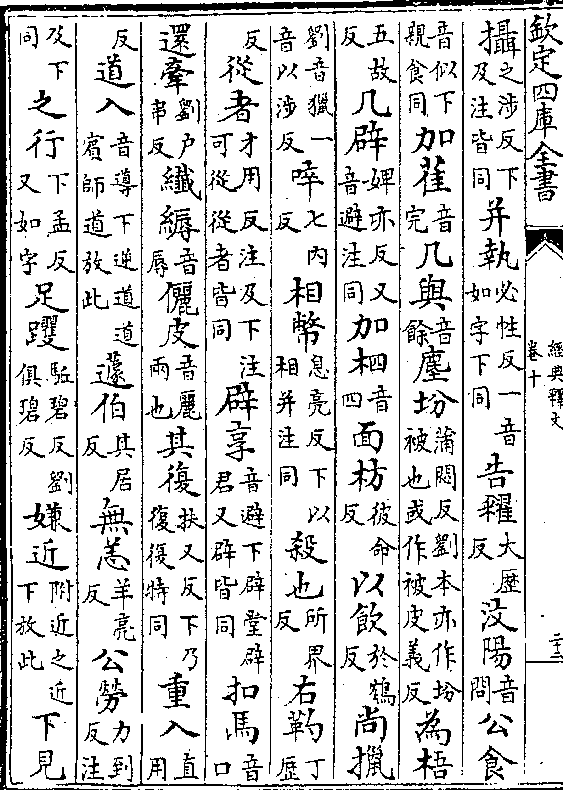 欽定四庫全書
經典釋文
卷十
二十二
攝之涉反下及注皆同并執必性反一音如字下同告糴大歷反汶陽音問公食
音似下親食同加萑音完几與音餘塵坋蒲悶反劉本亦作坋被也或作被皮義反為梧
五故反几辟婢亦反又音避注同加柶音四面枋彼命反以飲於鴆反尚擸
劉音獵一音以涉反啐七内反相幣息亮反下以相并注同殺也所界反右靮丁歷
反從者才用反注及下可從從者皆同注辟享音避下辟堂辟君又辟皆同扣馬音口
還牽劉戶串反纖縟音辱儷皮音麗兩也其復扶又反下乃復復特同重入直用
反道入音導下逆道道賓師道放此蘧伯其居反無恙羊亮反公勞力到反注
及下同之行下孟反又如字足躩駈碧反劉俱碧反嫌近附近之近下放此下見